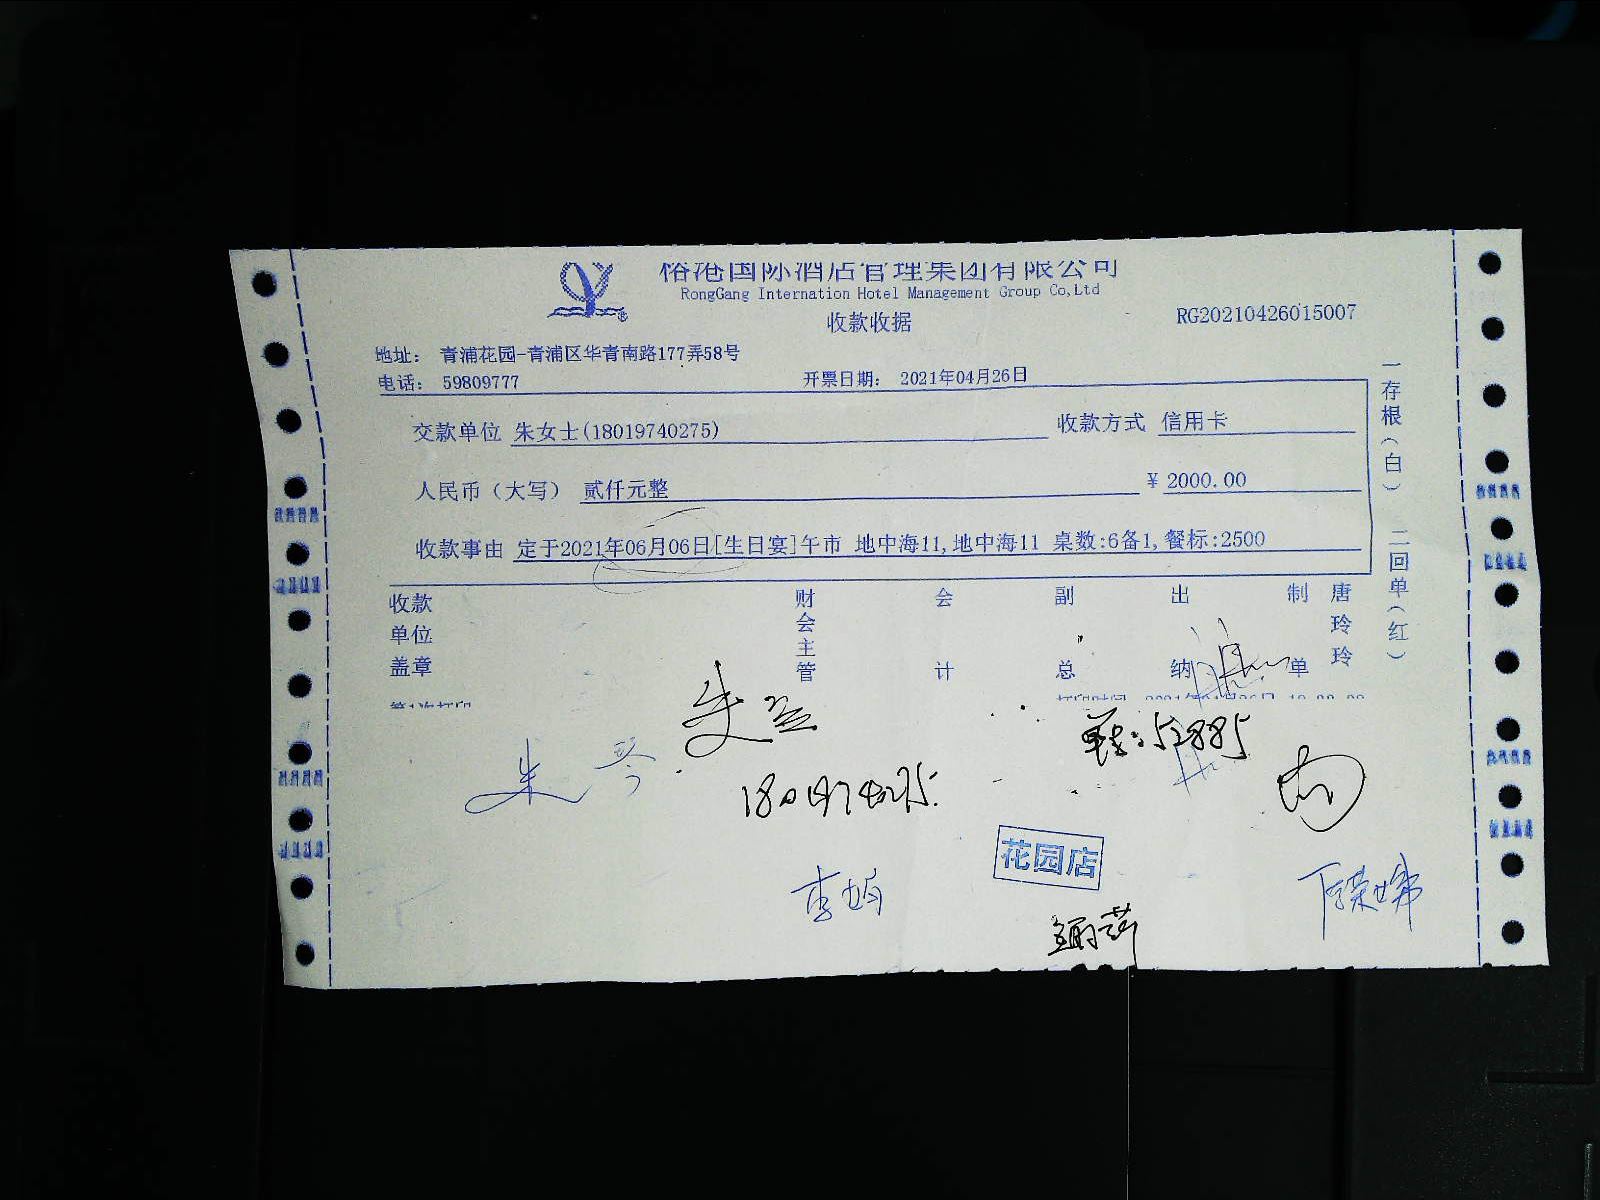 国际酒店管理集团有限公司
RongGang Internation Hotel Management Group Co,Ltd
收款收据
RG20210426015007
地址： 青浦花园-青浦区华青南路177弄58号
电话： 59809777
开票日期： 2021年04月26日
交款单位 朱女士(18019740275)
收款方式 信用卡
人民币（大写） 贰仟元整
¥ 2000.00
收款事由 定于2021年06月06日[生日宴]午市 地中海11,地中海11 桌数:6备1,餐标:2500
一存根（白） 二回单（红）
收款单位盖章
财会主管
会计
副总
出纳
制单
唐玲玲
第1次打印
打印时间
朱
18019740275
52885
花园店